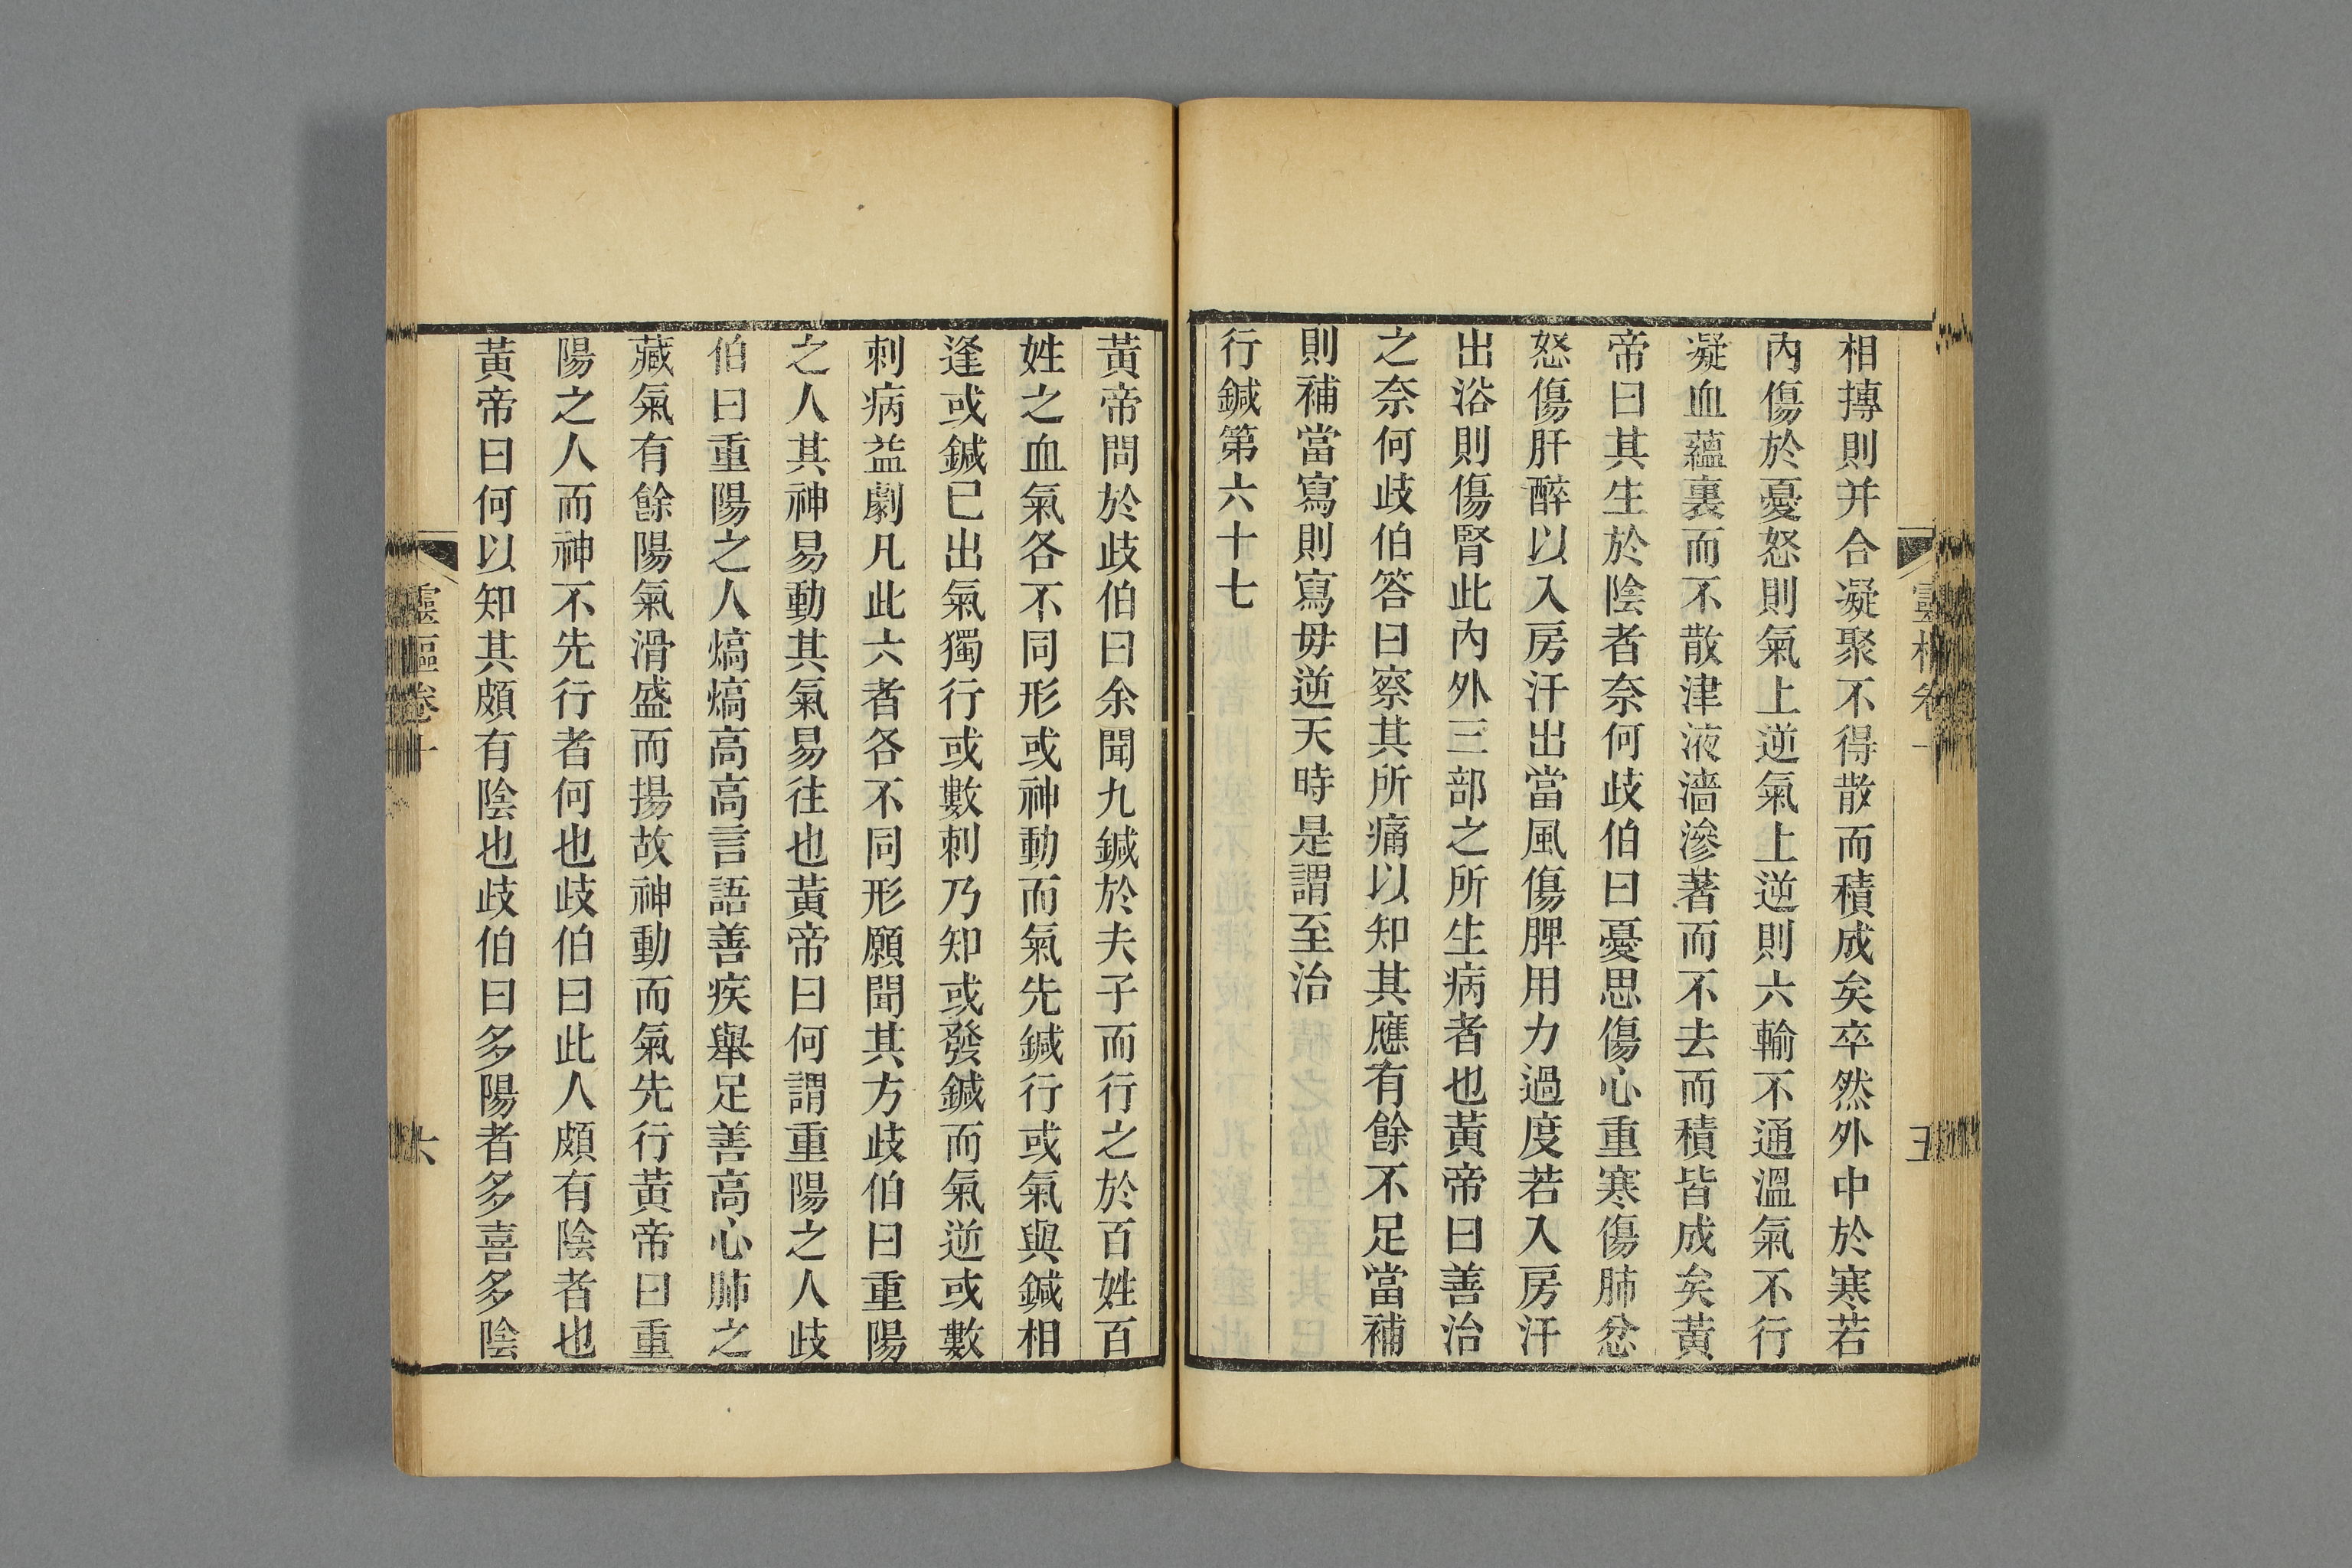 相摶則并合凝聚不得散而積成矣卒然外中於寒若
內傷於憂怒則氣上逆氣上逆則六輸不通溫氣不行
凝血蘊裏而不散津液濇滲著而不去而積皆成矣黃
帝曰其生於陰者奈何歧伯曰憂思傷心重寒傷肺忿
怒傷肝醉以入房汗出當風傷脾用力過度若入房汗
出浴則傷腎此內外三部之所生病者也黃帝曰善治
之奈何歧伯答曰察其所痛以知其應有餘不足當補
則補當寫則寫毋逆天時是謂至治
行鍼第六十七
黃帝問於歧伯曰余聞九鍼於夫子而行之於百姓百
姓之血氣各不同形或神動而氣先鍼行或氣與鍼相
逢或鍼已出氣獨行或數刺乃知或發鍼而氣逆或數
刺病益劇凡此六者各不同形願聞其方歧伯曰重陽
之人其神易動其氣易往也黃帝曰何謂重陽之人歧
伯曰重陽之人熇熇高高言語善疾舉足善高心肺之
藏氣有餘陽氣滑盛而揚故神動而氣先行黃帝曰重
陽之人而神不先行者何也歧伯曰此人頗有陰者也
黃帝曰何以知其頗有陰也歧伯曰多陽者多喜多陰
靈樞卷十
六